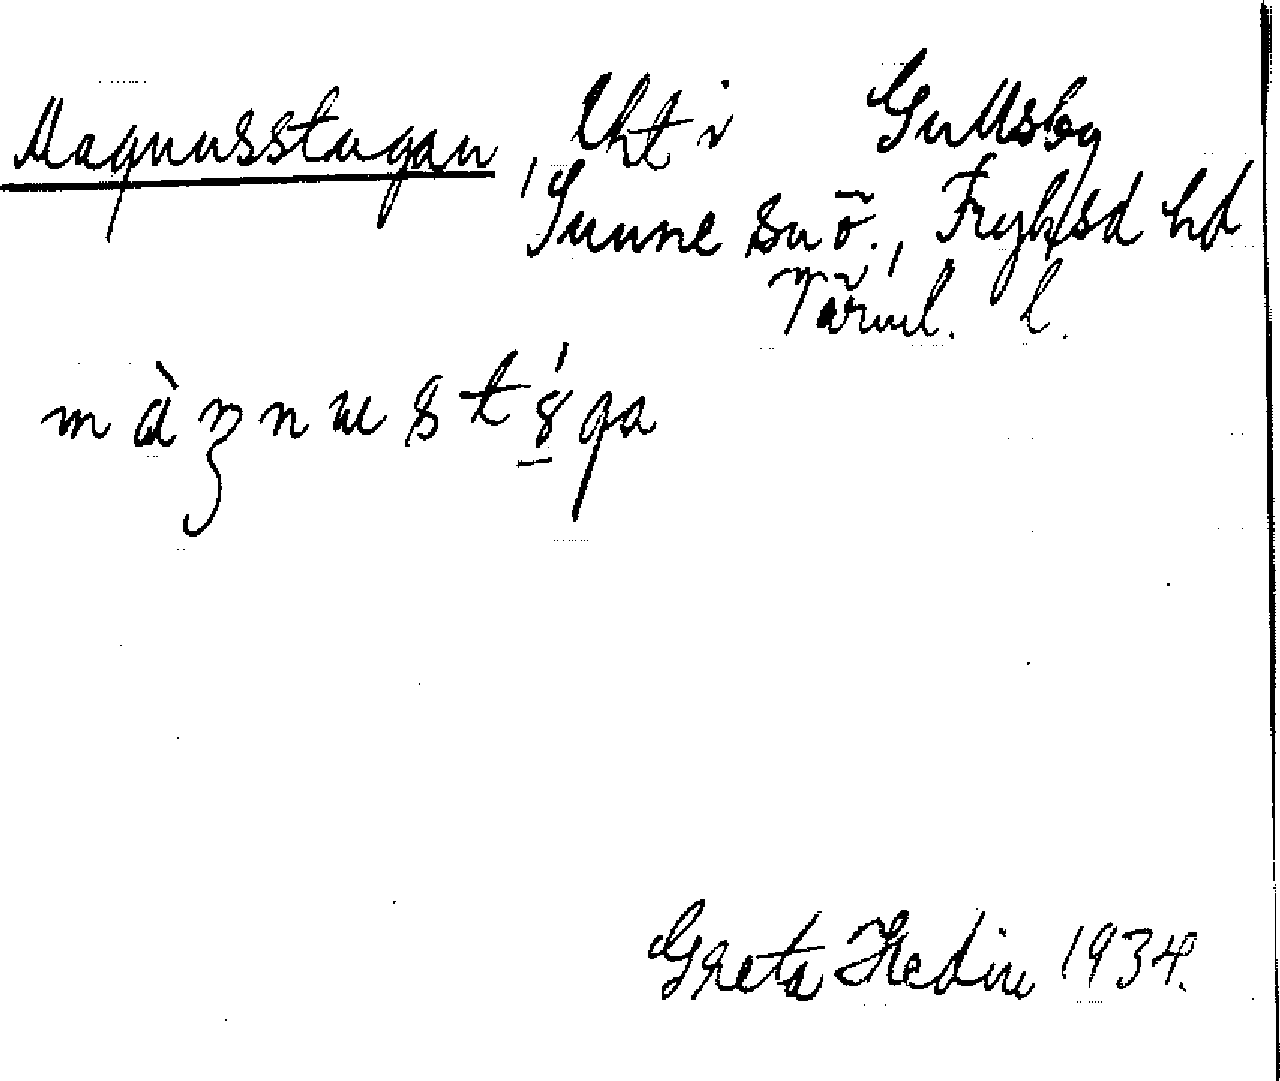 Magnusstugan, lht i Gullsby
Sunne sn ö., Fryksd hd
Värml. l.
màŋnɯstýga
Greta Hedin 1934.